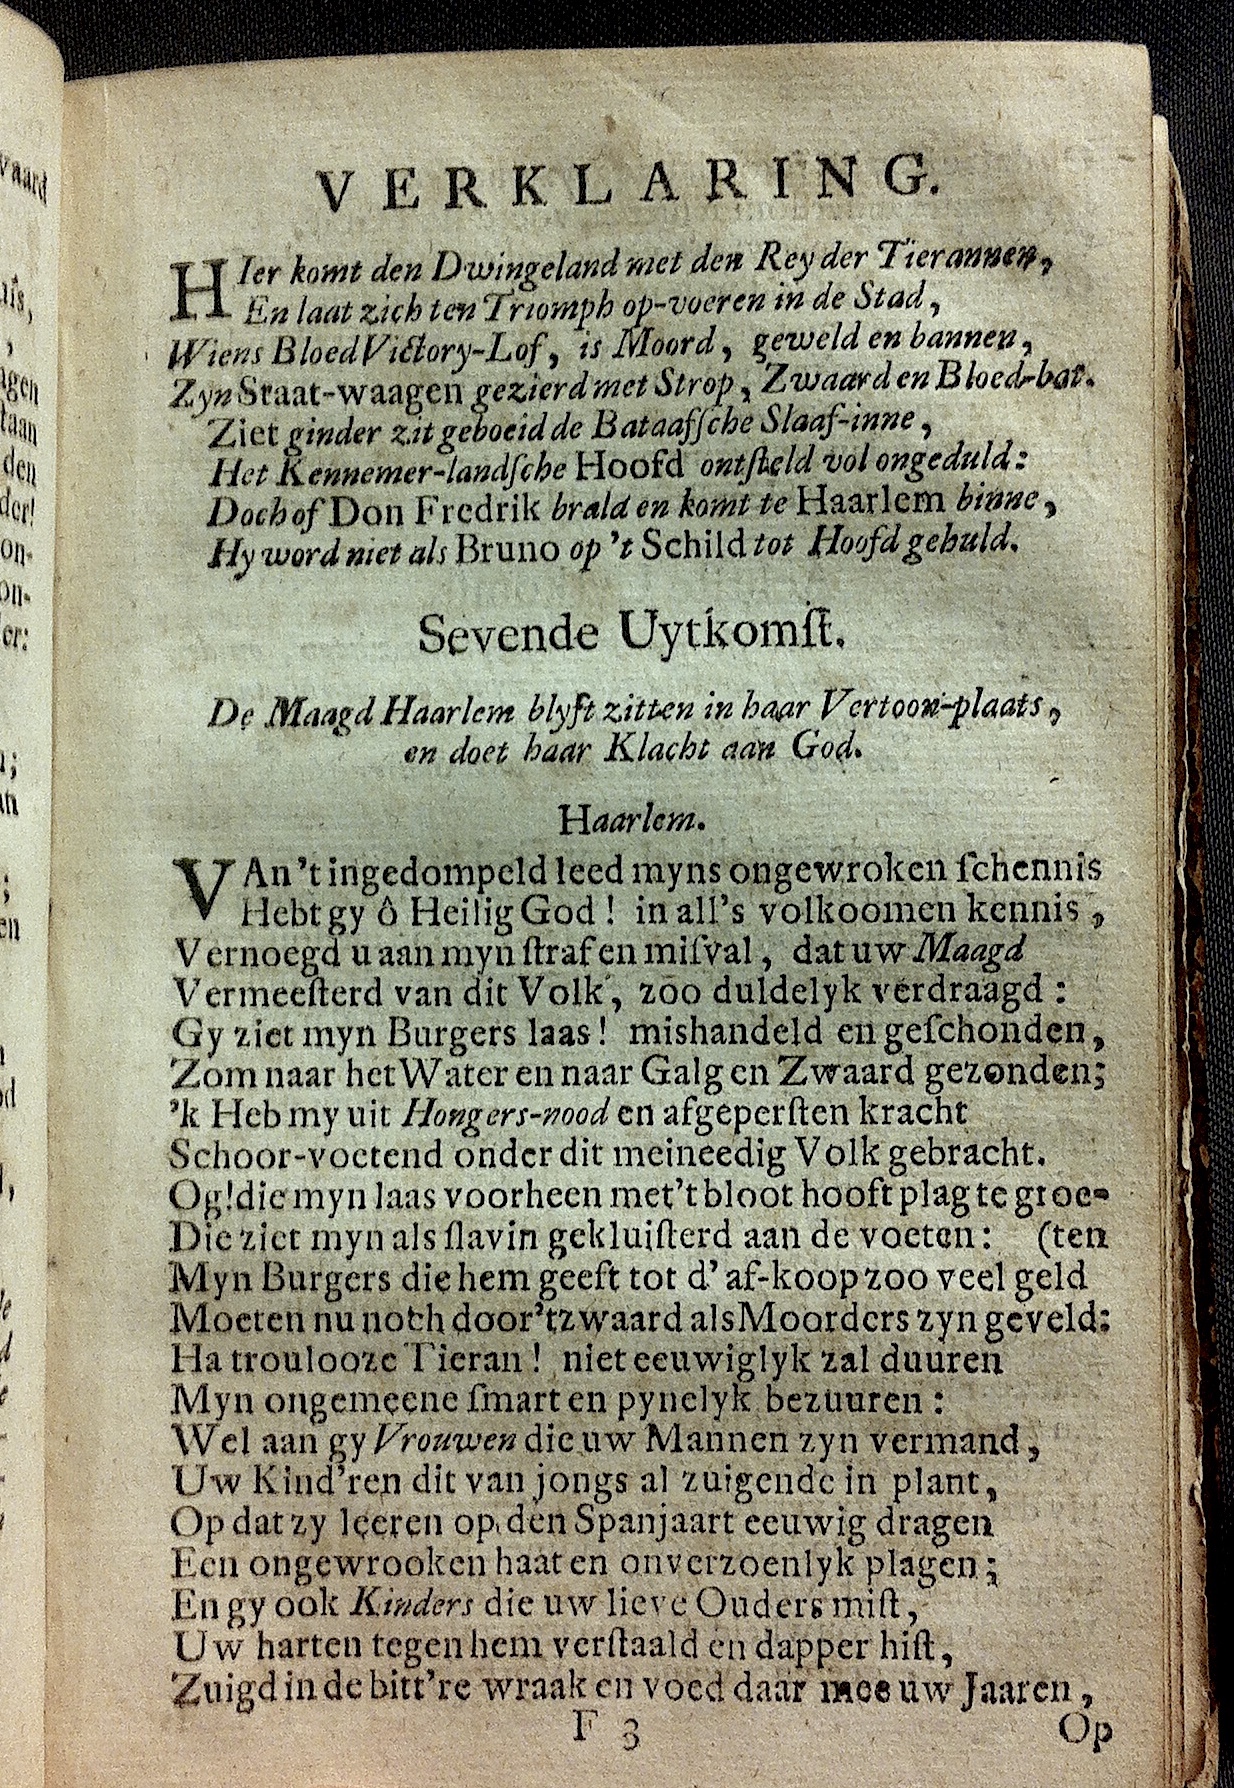 VERKLARING.
HIer komt den Dwingeland met den Rey der Tierannen,
En laat zich ten Triomph op-voeren in de Stad,
Wiens Bloed Victory-Lof, is Moord, geweld en bannen,
Zyn Staat-waagen gezierd met Strop, Zwaard en Bloed-bat.
Ziet ginder zit geboeid de Bataafſche Slaaf-inne,
Het Kennemer-landſche Hoofd ontſteld vol ongeduld:
Doch of Don Fredrik brald en komt te Haarlem binne,
Hy word niet als Bruno op 't Schild tot Hoofd gehuld.
Sevende Uytkomſt.
De Maagd Haarlem blyft zitten in haar Vertoon-plaats,
en doet haar Klacht aan God.
Haarlem.
VAn 't ingedompeld leed myns ongewroken ſchennis
Hebt gy ô Heilig God! in all's volkoomen kennis,
Vernoegd u aan myn ſtraf en miſval, dat uw Maagd
Vermeeſterd van dit Volk, zoo duldelyk verdraagd:
Gy ziet myn Burgers laas! mishandeld en geſchonden,
Zom naar het Water en naar Galg en Zwaard gezonden;
'k Heb my uit Hongers-nood en afgeperſten kracht
Schoor-voetend onder dit meineedig Volk gebracht.
Og! die myn laas voorheen met 't bloot hooft plag te groe-
Die ziet myn als ſlavin gekluiſterd aan de voeten: (ten
Myn Burgers die hem geeft tot d' af-koop zoo veel geld
Moeten nu noth door 't zwaard als Moorders zyn geveld:
Ha troulooze Tieran! niet eeuwiglyk zal duuren
Myn ongemeene ſmart en pynelyk bezuuren:
Wel aan gy Vrouwen die uw Mannen zyn vermand,
Uw Kind'ren dit van jongs al zuigende in plant,
Op dat zy leeren op den Spanjaart eeuwig dragen
Een ongewrooken haat en onverzoenlyk plagen;
En gy ook Kinders die uw lieve Ouders miſt,
Uw harten tegen hem verſtaald en dapper hiſt,
Zuigd in de bitt're wraak en voed daar mee uw Jaaren,
F 3 Op